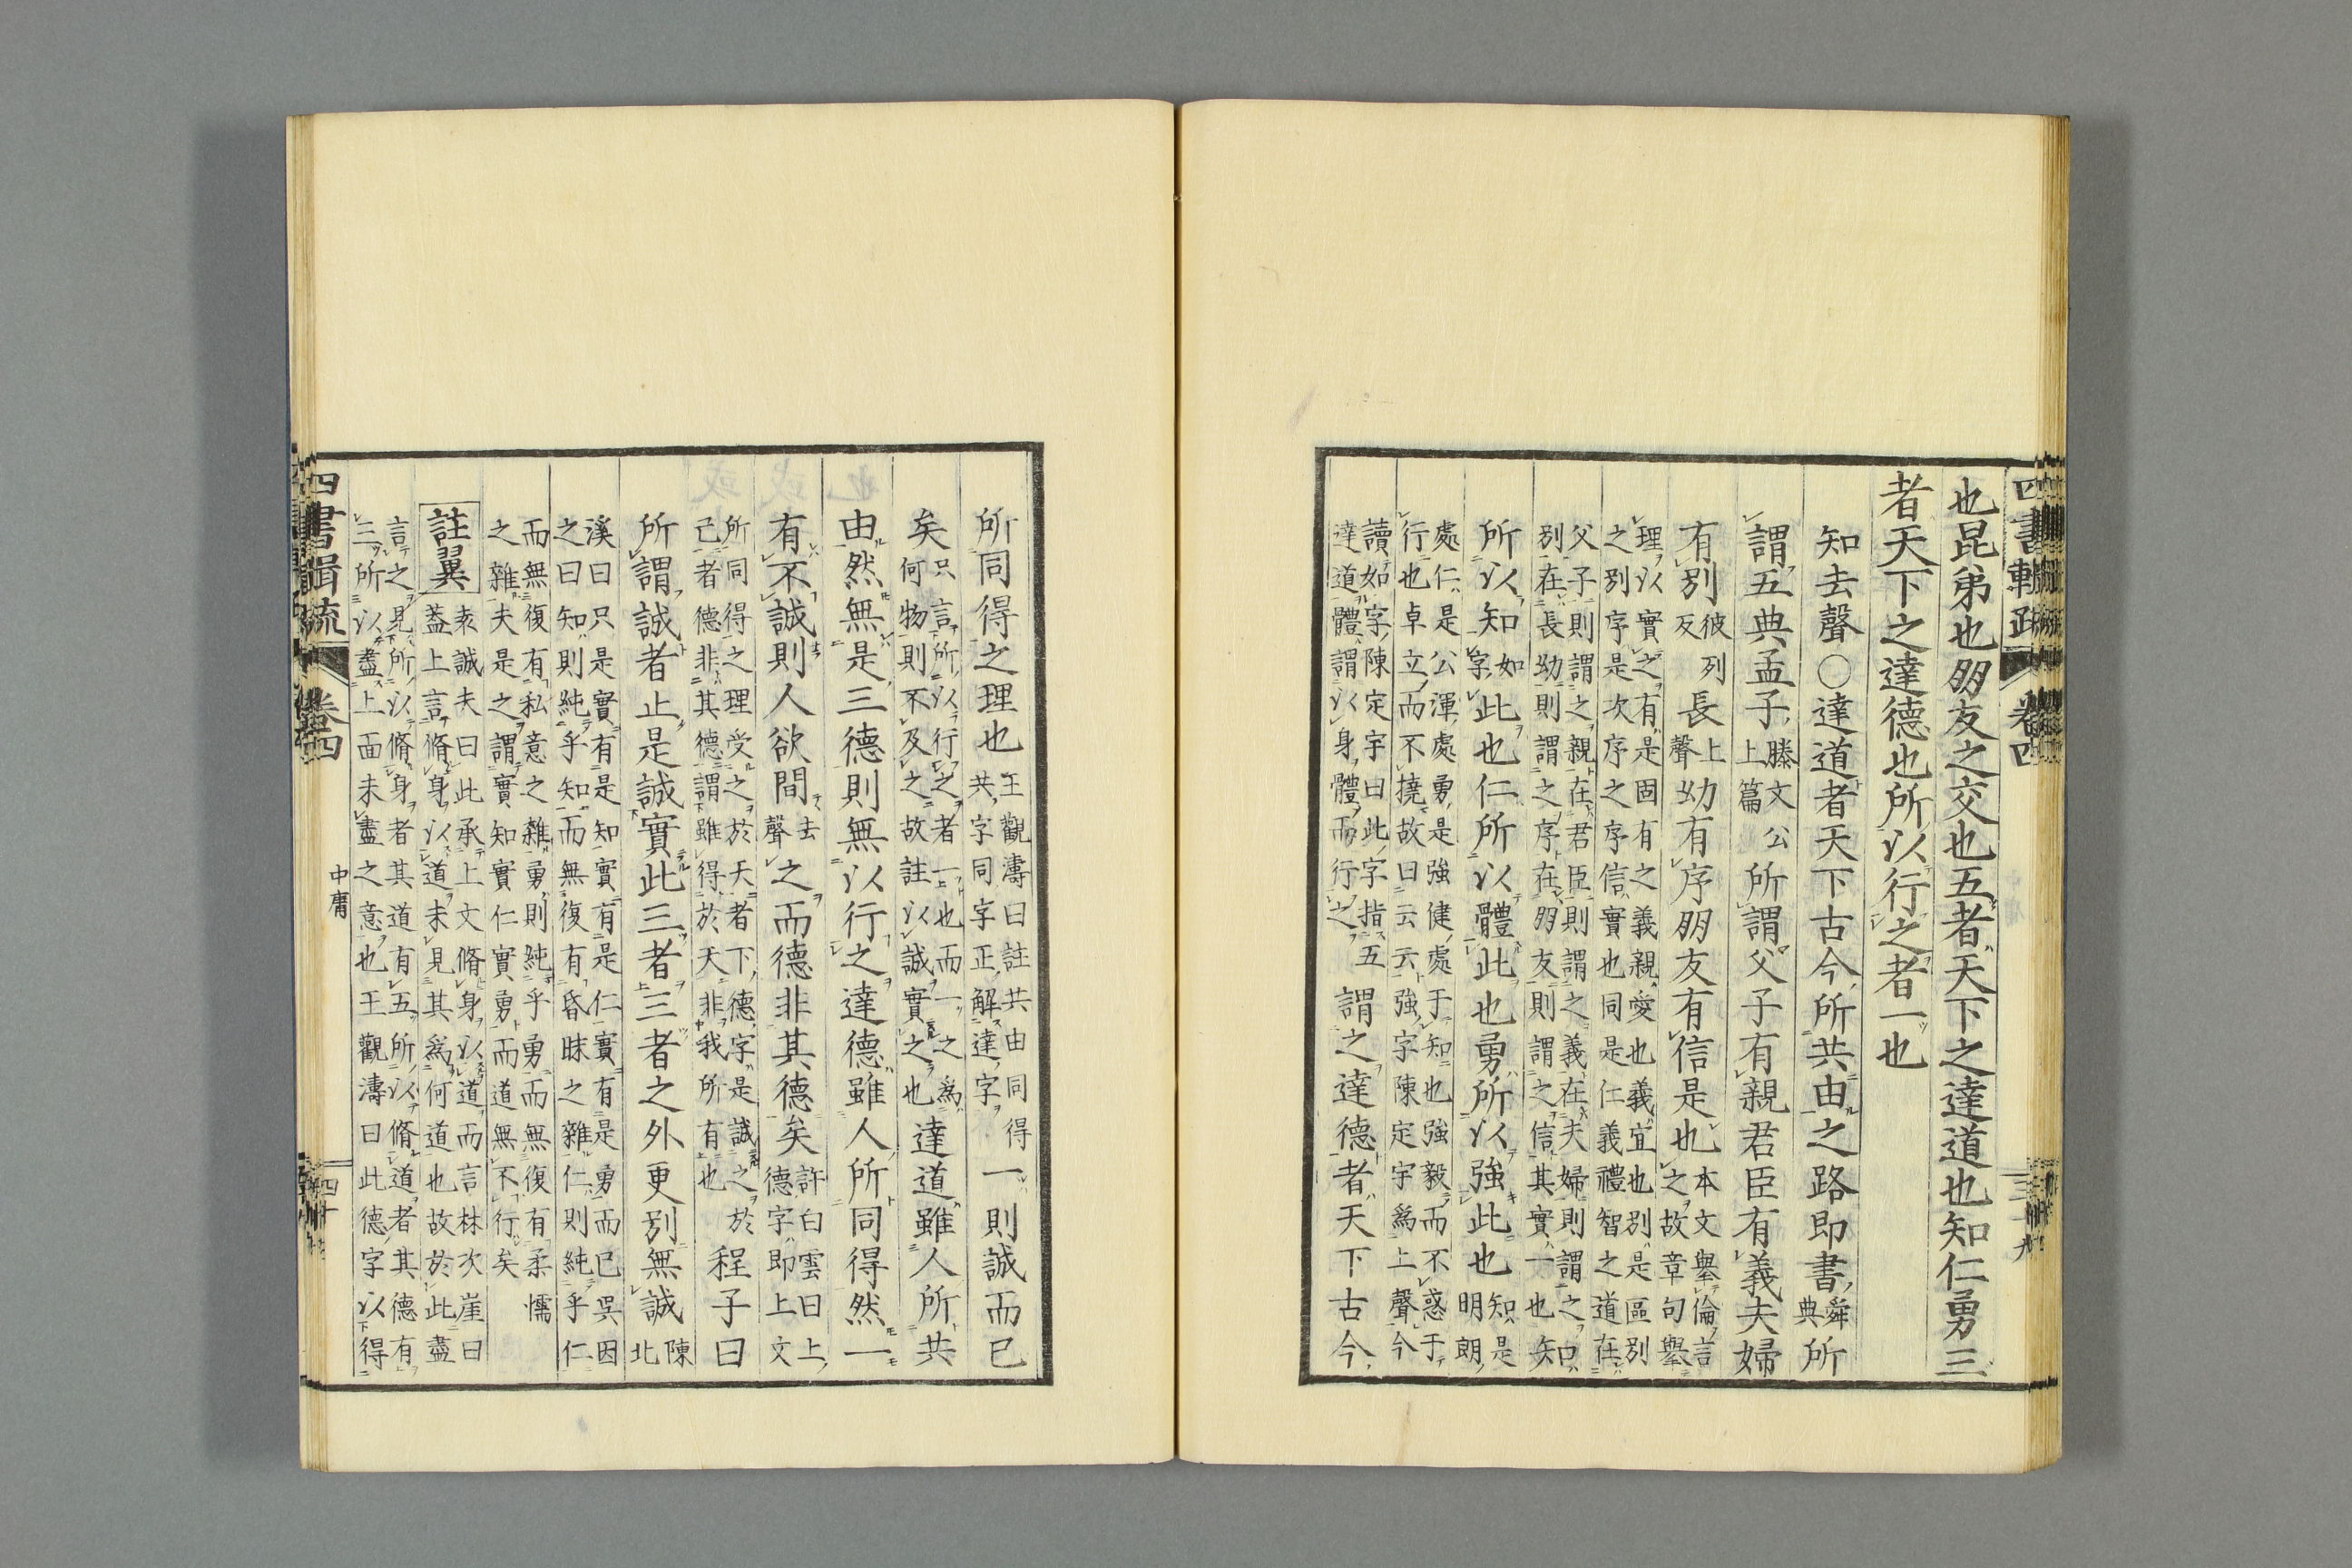 四書輯疏 卷四
也昆弟也朋友之交也五者天下之達道也知仁勇三
者天下之達德也所以行之者一也
知去聲○達道者天下古今所共由之路即書舜典所
謂五典孟子滕文公上篇所謂父子有親君臣有義夫婦
有別彼列反長上聲幼有序朋友有信是也本文舉倫言之故章句舉
理以實之有是固有之義親愛也義宜也別是區別
之別序是次序之序信實也同是仁義禮智之道在
父子則謂之親在君臣則謂之義在夫婦則謂之
別在長幼則謂之序在朋友則謂之信其實一也
所以知如字此也仁所以體此也勇所以強此也知是明朗
處仁是公渾處勇是強健處于知也強毅而不惑于
行也卓立而不撓故曰云云強字陳定宇爲上聲今
讀如字陳定宇曰此字指五
達道體謂以身體而行之
謂之達德者天下古今
所同得之理也王觀濤曰註共由同得共字同字正解達字一則誠而已
矣只言所以行之者一也而一之爲何物則不及之故註以誠實之也達道雖人所共
由然無是三德則無以行之達德雖人所同得然一
有不誠則人欲間去聲之而德非其德矣許白雲曰上德字即上文
所同得之理受之於天者下德字是誠之於
己者德非其德謂雖得於天非我所有也
程子曰
所謂誠者止是誠實此三者三者之外更別無誠陳北
溪曰只是實有是知實有是仁實有是勇而已吳因
之曰知則純乎知而無復有昏昧之雜仁則純乎仁
而無復有私意之雜勇則純乎勇而無復有柔懦
之雜夫是之謂實知實仁實勇而道無不行矣
註翼
袁誠夫曰此承上文脩身以道而言林次崖曰
蓋上言脩身以道未見其爲何道也故於此盡
言之見所以脩身者其道有五所以脩道者其德有
三所以盡上面未盡之意也王觀濤曰此德字以得
四書輯疏 卷四
中庸
四十